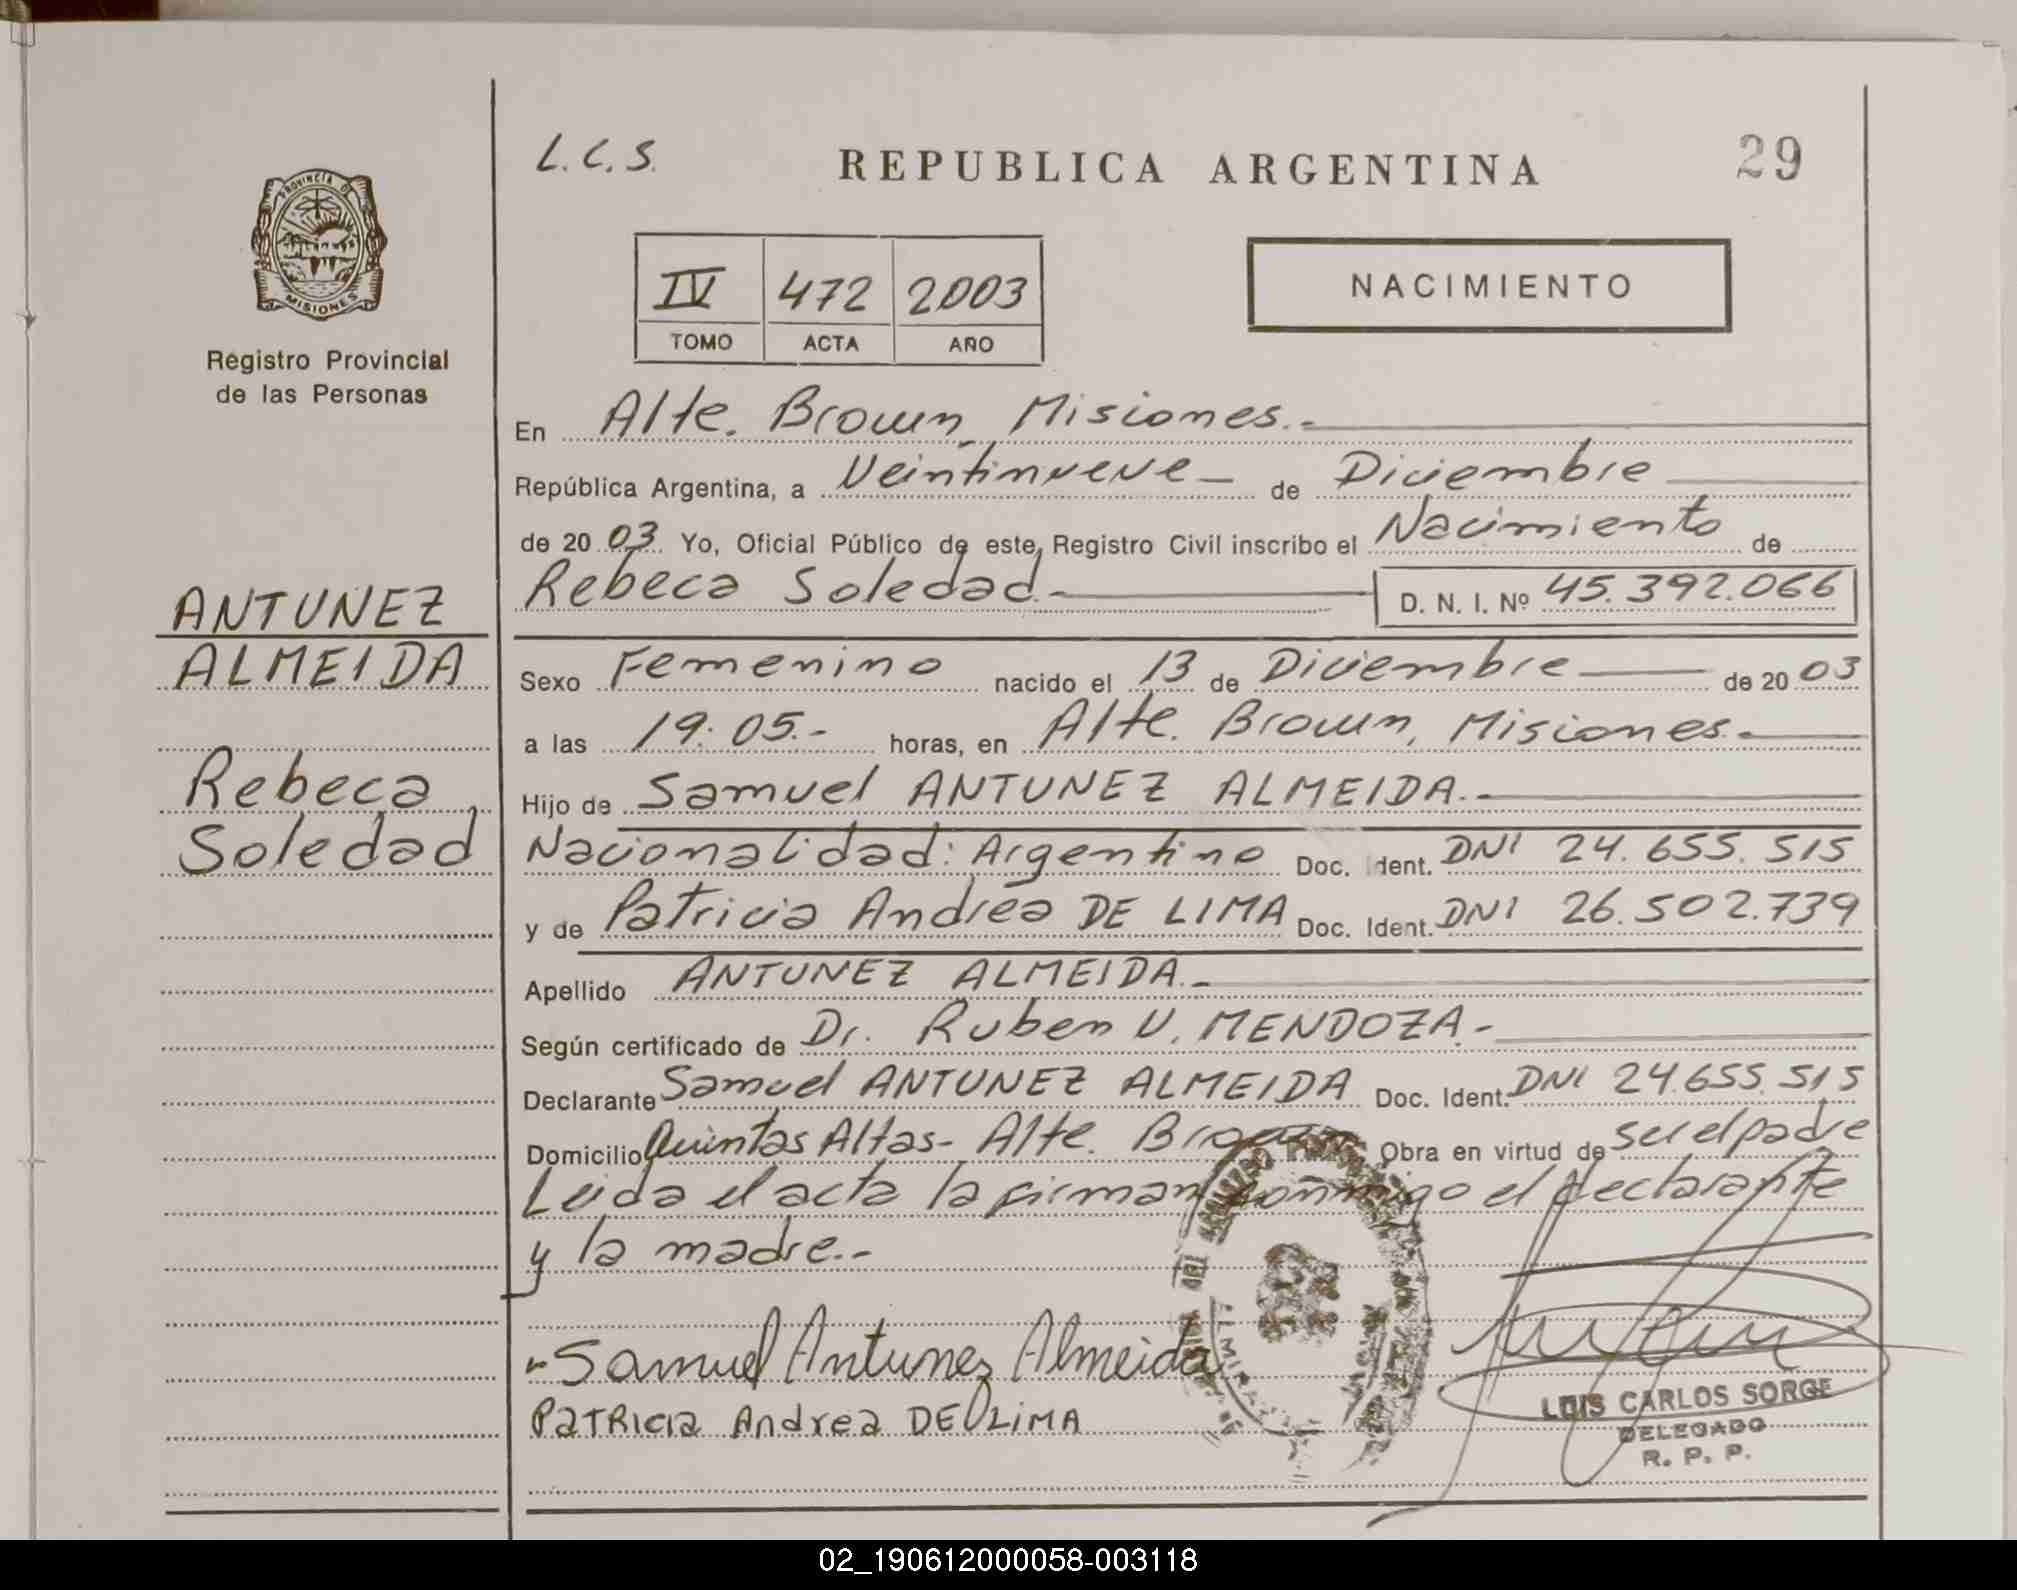 L.C.S.
REPUBLICA ARGENTINA
29
PROVINCIA D
MISIONES
Registro Provincial
de las Personas
IV 472 2003
TOMO ACTA AÑO
NACIMIENTO
En Alte. Brown, Misiones.-
República Argentina, a Veintinueve - de Diciembre
de 20 03 Yo, Oficial Público de este Registro Civil inscribo el Nacimiento de
Rebeca Soledad.- D. N. I. Nº 45.392.066
ANTUNEZ
ALMEIDA
Rebeca
Soledad
Sexo Femenino nacido el 13 de Diciembre de 20 03
a las 19:05.- horas, en Alte. Brown, Misiones.-
Hijo de Samuel ANTUNEZ ALMEIDA.-
Nacionalidad: Argentino Doc. Ident. DNI 24.655.515
y de Patricia Andrea DE LIMA Doc. Ident. DNI 26.502.739
Apellido ANTUNEZ ALMEIDA.-
Según certificado de Dr. Ruben V. MENDOZA.-
Declarante Samuel ANTUNEZ ALMEIDA Doc. Ident. DNI 24.655.515
Domicilio Quintas Altas - Alte. Brown Obra en virtud de ser el padre
Leida el acta la firman conmigo el declarante
y la madre.-
Samuel Antunez Almeida
PATRICIA Andrea DE LIMA
LUIS CARLOS SORGE
DELEGADO
R. P. P.
02_190612000058-003118